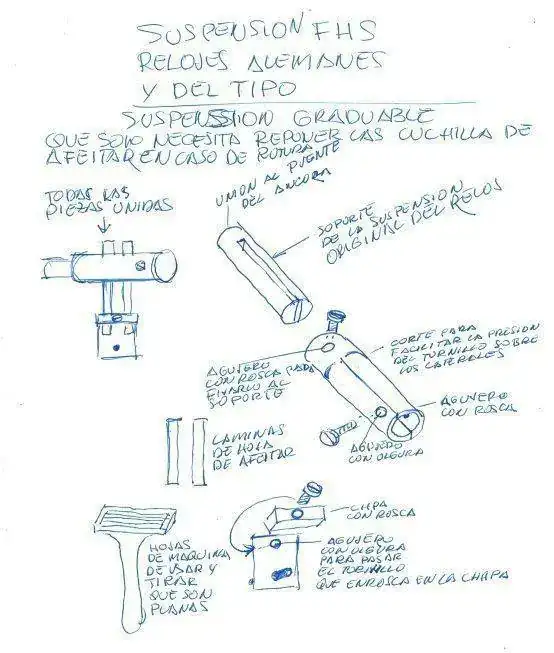 SUSPENSION FHS
RELOJES ALEMANES
Y DEL TIPO
SUSPENSSION GRADUABLE
QUE SOLO NECESITA REPONER LAS CUCHILLA DE
AFEITAR EN CASO DE RUTURA
TODAS LAS
PIEZAS UNIDAS
UNION AL PUENTE
DEL ANCORA
SOPORTE
DE LA SUSPENSION
ORIGINAL DEL RELOS
AGUJERO
CON ROSCA PARA
FIJARLO AL
SOPORTE
CORTE PARA
FACILITAR LA PRESION
DEL TORNILLO SOBRE
LOS LATERALES
AGUVERO
CON ROSCA
AGUJERO
CON OLGURA
LAMINAS
DE HOJA
DE AFEITAR
CHPA
CON ROSCA
HOJAS
DE MAQUINA
DE USAR Y
TIRAR
QUE SON
PLANAS
AGUJERO
CON OLGURA
PARA PASAR
EL TORNILLO
QUE ENROSCA EN LA CHAPA